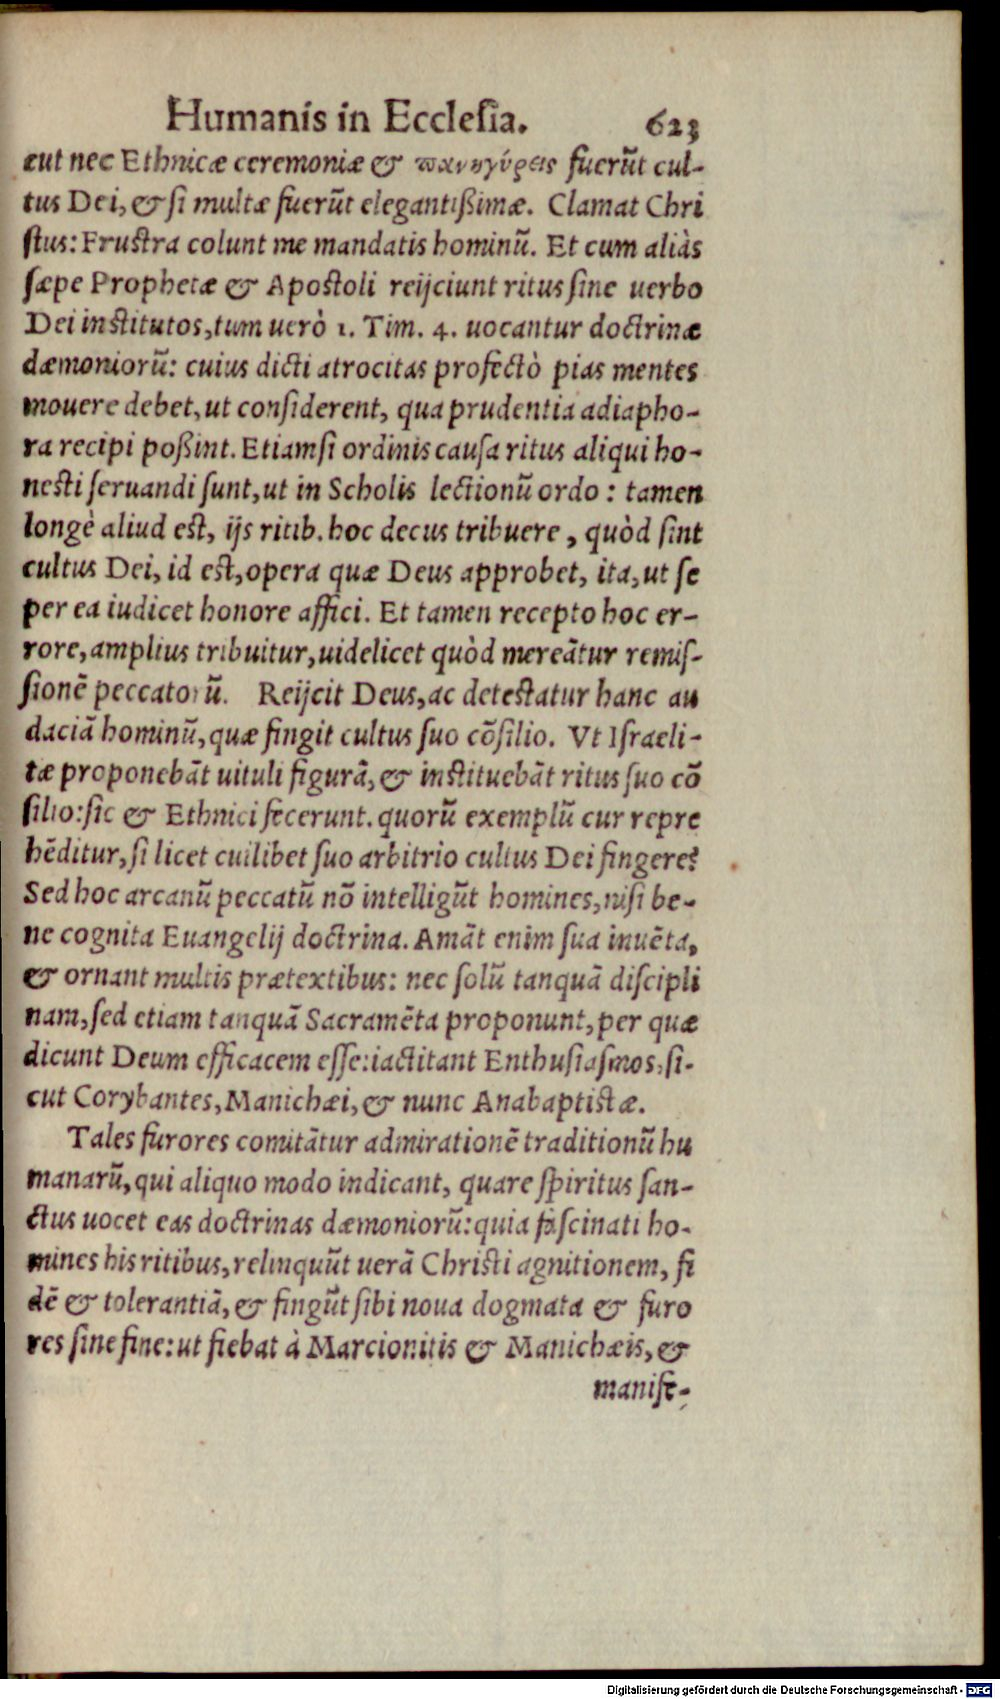 Humanis in Ecclesia. 623
cut nec Ethnicæ ceremoniæ & πανηγύρεις fuerūt cul-
tus Dei, & si multæ fuerūt elegantißimæ. Clamat Chri
stus: Frustra colunt me mandatis hominū. Et cum aliàs
sæpe Prophetæ & Apostoli reijciunt ritus sine uerbo
Dei institutos, tum uerò 1. Tim. 4. uocantur doctrinæ
dæmoniorū: cuius dicti atrocitas profectò pias mentes
mouere debet, ut considerent, qua prudentia adiapho-
ra recipi poßint. Etiamsi ordinis causa ritus aliqui ho-
nesti seruandi sunt, ut in Scholis lectionū ordo: tamen
longè aliud est, ijs ritib. hoc decus tribuere, quòd sint
cultus Dei, id est, opera quæ Deus approbet, ita, ut se
per ea iudicet honore affici. Et tamen recepto hoc er-
rore, amplius tribuitur, uidelicet quòd mereātur remis-
sionē peccatorū. Reijcit Deus, ac detestatur hanc au
daciā hominū, quæ fingit cultus suo cōsilio. Vt Israeli-
tæ proponebāt uituli figurā, & instituebāt ritus suo cō
silio: sic & Ethnici fecerunt. quorū exemplū cur repre
hēditur, si licet cuilibet suo arbitrio cultus Dei fingere?
Sed hoc arcanū peccatū nō intelligūt homines, nisi be-
ne cognita Euangelij doctrina. Amāt enim sua inuēta,
& ornant multis prætextibus: nec solū tanquā discipli
nam, sed etiam tanquā Sacramēta proponunt, per quæ
dicunt Deum efficacem esse: iactitant Enthusiasmos, si-
cut Corybantes, Manichæi, & nunc Anabaptistæ.
Tales furores comitātur admirationē traditionū hu
manarū, qui aliquo modo indicant, quare spiritus san-
ctus uocet eas doctrinas dæmoniorū: quia fascinati ho-
mines his ritibus, relinquūt uerā Christi agnitionem, fi
dē & tolerantiā, & fingūt sibi noua dogmata & furo
res sine fine: ut fiebat à Marcionitis & Manichæis, &
manife-
Digitalisierung gefördert durch die Deutsche Forschungsgemeinschaft - DFG